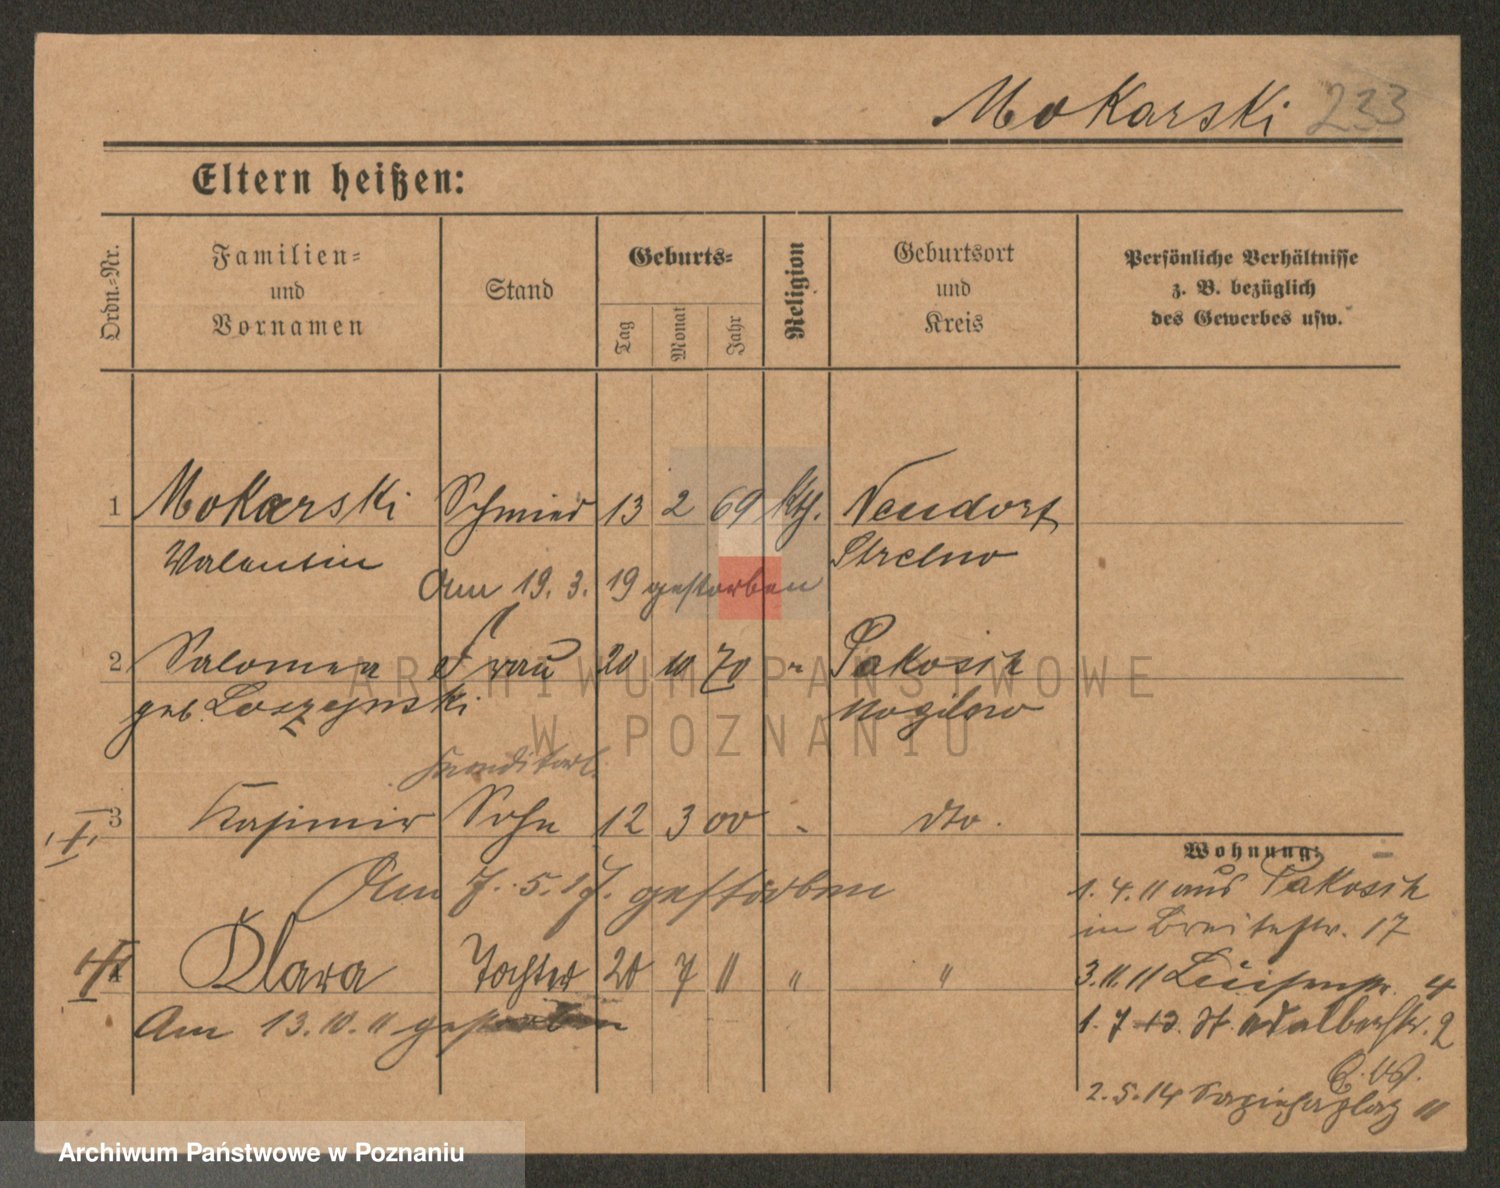 Mokarski 233
Eltern heißen:
Ordn.=Nr.
Familien=
und
Vornamen
Stand
Geburts=
Tag
Monat
Jahr
Religion
Geburtsort
und
Kreis
Persönliche Verhältnisse
z. B. bezüglich
des Gewerbes usw.
1 Mokarski Schmied 13 2 69 Kth. Neudorf
Valentin Strelno
Am 19. 3. 19 gestorben
2 Salomea Frau 20 10 70 " Pakosch
geb. Loszynski Mogilno
3 Kasimir Sohn 12 3 00 " dto.
Am 7. 5. 17. gestorben
4 Klara Tochter 20 7 11 " "
Am 13. 10. 11 gestorben
Wohnung:
1. 4. 11 aus Pakosch
in Breitestr. 17
3. 11. 11 Luisenstr. 4
1. 7 13. St. Adalbertstr. 2
2. 5. 14 Sapiehaplatz 11
ARCHIWUM PAŃSTWOWE
W POZNANIU
Archiwum Państwowe w Poznaniu